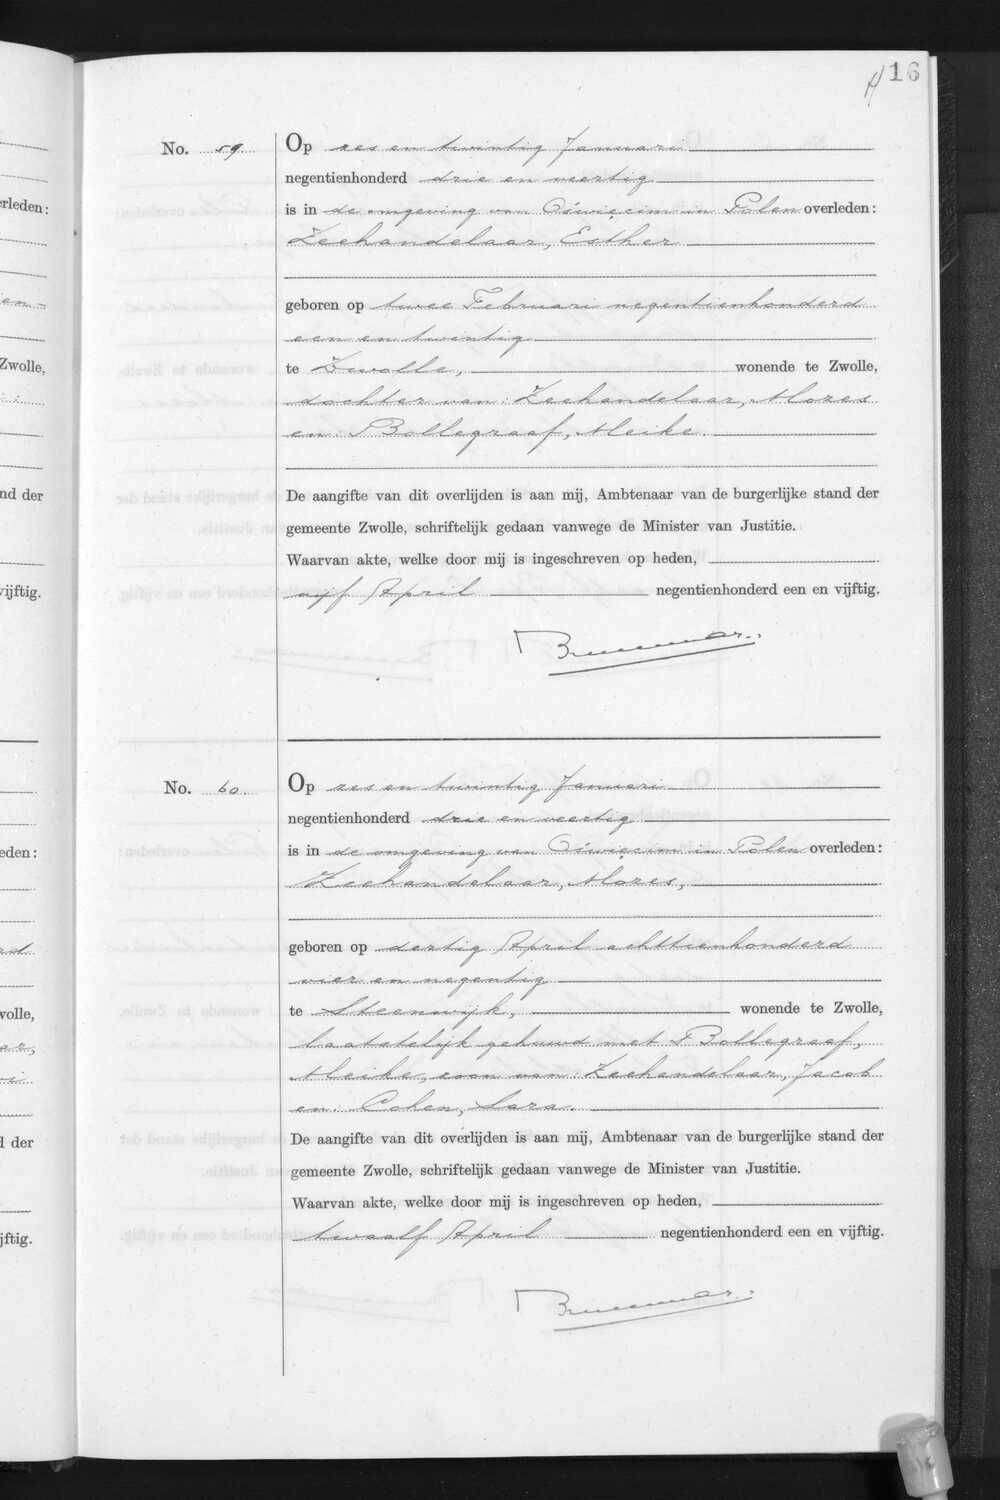 H 16
No. 59
Op zes en twintig Januari
negentienhonderd drie en veertig
is in de omgeving van Oświęcim in Polen overleden:
Zeehandelaar, Esther
geboren op twee Februari negentienhonderd
een en twintig
te Zwolle, wonende te Zwolle,
dochter van: Zeehandelaar, Mozes
en: Bollegraaf, Meike.
De aangifte van dit overlijden is aan mij, Ambtenaar van de burgerlijke stand der
gemeente Zwolle, schriftelijk gedaan vanwege de Minister van Justitie.
Waarvan akte, welke door mij is ingeschreven op heden,
vijf April negentienhonderd een en vijftig.
No. 60.
Op zes en twintig Januari
negentienhonderd drie en veertig
is in de omgeving van Oświęcim in Polen overleden:
Zeehandelaar, Mozes,
geboren op dertig April achttienhonderd
vier en negentig
te Steenwijk, wonende te Zwolle,
laatstelijk gehuwd met Bollegraaf,
Meike, zoon van: Zeehandelaar, Jacob
en: Cohen, Sara.
De aangifte van dit overlijden is aan mij, Ambtenaar van de burgerlijke stand der
gemeente Zwolle, schriftelijk gedaan vanwege de Minister van Justitie.
Waarvan akte, welke door mij is ingeschreven op heden,
twaalf April negentienhonderd een en vijftig.